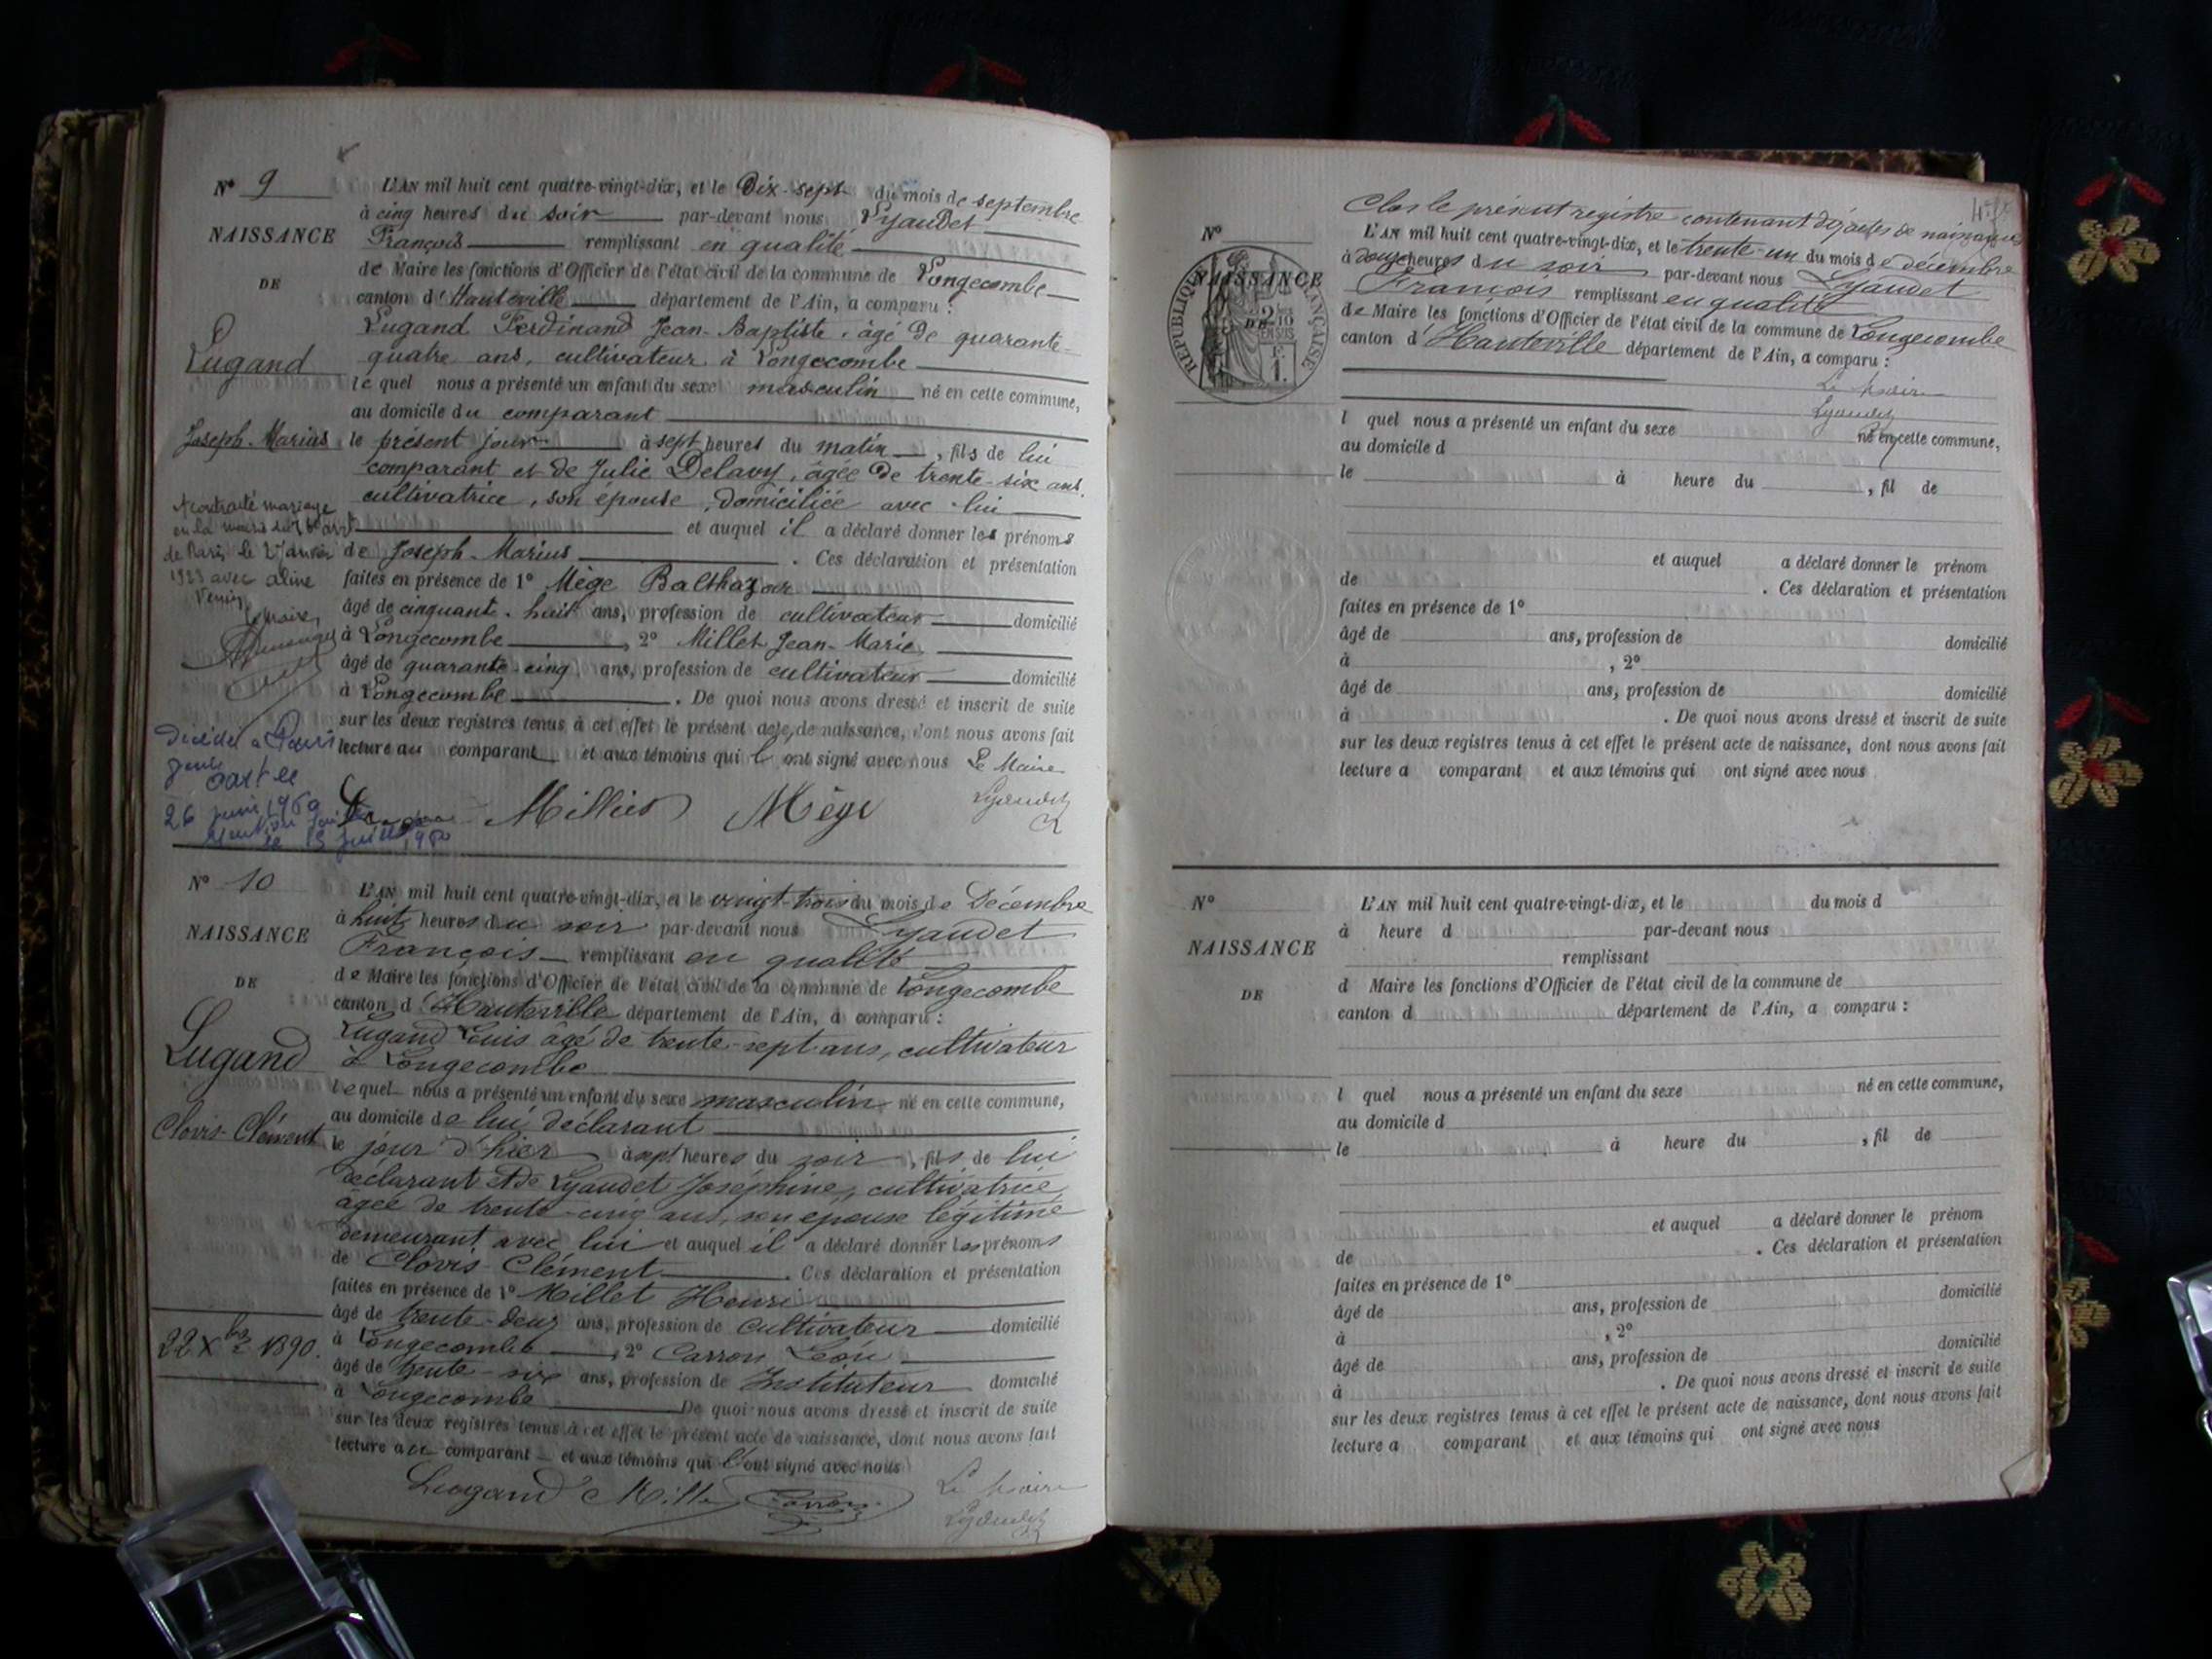 N° 9
NAISSANCE
DE
Lugand
Joseph-Marius
L'AN mil huit cent quatre-vingt-dix, et le Dix-sept du mois de septembre
à cinq heures du soir par-devant nous Lyaudet
François remplissant en qualité
de Maire les fonctions d'Officier de l'état civil de la commune de Longecombe
canton d'Hauteville département de l'Ain, a comparu :
Lugand Ferdinand Jean-Baptiste, âgé de quarante-
quatre ans, cultivateur à Longecombe
lequel nous a présenté un enfant du sexe masculin né en cette commune,
au domicile du comparant
le présent jour à sept heures du matin, fils de lui
comparant et de Julie Delavy, âgée de trente-six ans,
cultivatrice, son épouse, domiciliée avec lui
et auquel il a déclaré donner les prénoms
de Joseph-Marius. Ces déclaration et présentation
faites en présence de 1° Mège Balthazar
âgé de cinquante-huit ans, profession de cultivateur domicilié
à Longecombe, 2° Millet Jean-Marie
âgé de quarante-cinq ans, profession de cultivateur domicilié
à Longecombe. De quoi nous avons dressé et inscrit de suite
sur les deux registres tenus à cet effet le présent acte de naissance, dont nous avons fait
lecture au comparant et aux témoins qui l'ont signé avec nous Le Maire
Millet Mège Lyaudet
A contracté mariage
en la mairie du arrt
de Paris le 2 Janvier
1923 avec Aline
Le Maire
Décédé à Paris
26 juin 1960
le 15 juillet 1960
N° 10
NAISSANCE
DE
Lugand
Clovis-Clément
22 Xbre 1890.
L'AN mil huit cent quatre-vingt-dix, et le vingt-trois du mois de Décembre
à huit heures du soir par-devant nous Lyaudet
François remplissant en qualité
de Maire les fonctions d'Officier de l'état civil de la commune de Longecombe
canton d'Hauteville département de l'Ain, a comparu :
Lugand Louis âgé de trente-sept ans, cultivateur
à Longecombe
lequel nous a présenté un enfant du sexe masculin né en cette commune,
au domicile de lui déclarant
le jour d'hier à sept heures du soir, fils de lui
déclarant et de Lyaudet Joséphine, cultivatrice,
âgée de trente-cinq ans, son épouse légitime
demeurant avec lui et auquel il a déclaré donner les prénoms
de Clovis-Clément. Ces déclaration et présentation
faites en présence de 1° Millet Henri
âgé de trente-deux ans, profession de Cultivateur domicilié
à Longecombe, 2° Carron Léon
âgé de trente-six ans, profession de Instituteur domicilié
à Longecombe De quoi nous avons dressé et inscrit de suite
sur les deux registres tenus à cet effet le présent acte de naissance, dont nous avons fait
lecture au comparant et aux témoins qui l'ont signé avec nous
Lugand Millet Carron Le Maire
Lyaudet
Clos le présent registre contenant dix actes de naissances
N°
NAISSANCE
DE
RÉPUBLIQUE FRANÇAISE
2/10 EN SUS
1 F.
L'AN mil huit cent quatre-vingt-dix, et le trente-un du mois de décembre
à douze heures du soir par-devant nous Lyaudet
François remplissant en qualité
de Maire les fonctions d'Officier de l'état civil de la commune de Longecombe
canton d'Hauteville département de l'Ain, a comparu :
Le Maire
Lyaudet
l quel nous a présenté un enfant du sexe né en cette commune,
au domicile d
le à heure du , fil de
et auquel a déclaré donner le prénom
de . Ces déclaration et présentation
faites en présence de 1°
âgé de ans, profession de domicilié
à , 2°
âgé de ans, profession de domicilié
à . De quoi nous avons dressé et inscrit de suite
sur les deux registres tenus à cet effet le présent acte de naissance, dont nous avons fait
lecture a comparant et aux témoins qui ont signé avec nous
N°
NAISSANCE
DE
L'AN mil huit cent quatre-vingt-dix, et le du mois d
à heure d par-devant nous
remplissant
d Maire les fonctions d'Officier de l'état civil de la commune de
canton d département de l'Ain, a comparu :
l quel nous a présenté un enfant du sexe né en cette commune,
au domicile d
le à heure du , fil de
et auquel a déclaré donner le prénom
de . Ces déclaration et présentation
faites en présence de 1°
âgé de ans, profession de domicilié
à , 2°
âgé de ans, profession de domicilié
à . De quoi nous avons dressé et inscrit de suite
sur les deux registres tenus à cet effet le présent acte de naissance, dont nous avons fait
lecture a comparant et aux témoins qui ont signé avec nous